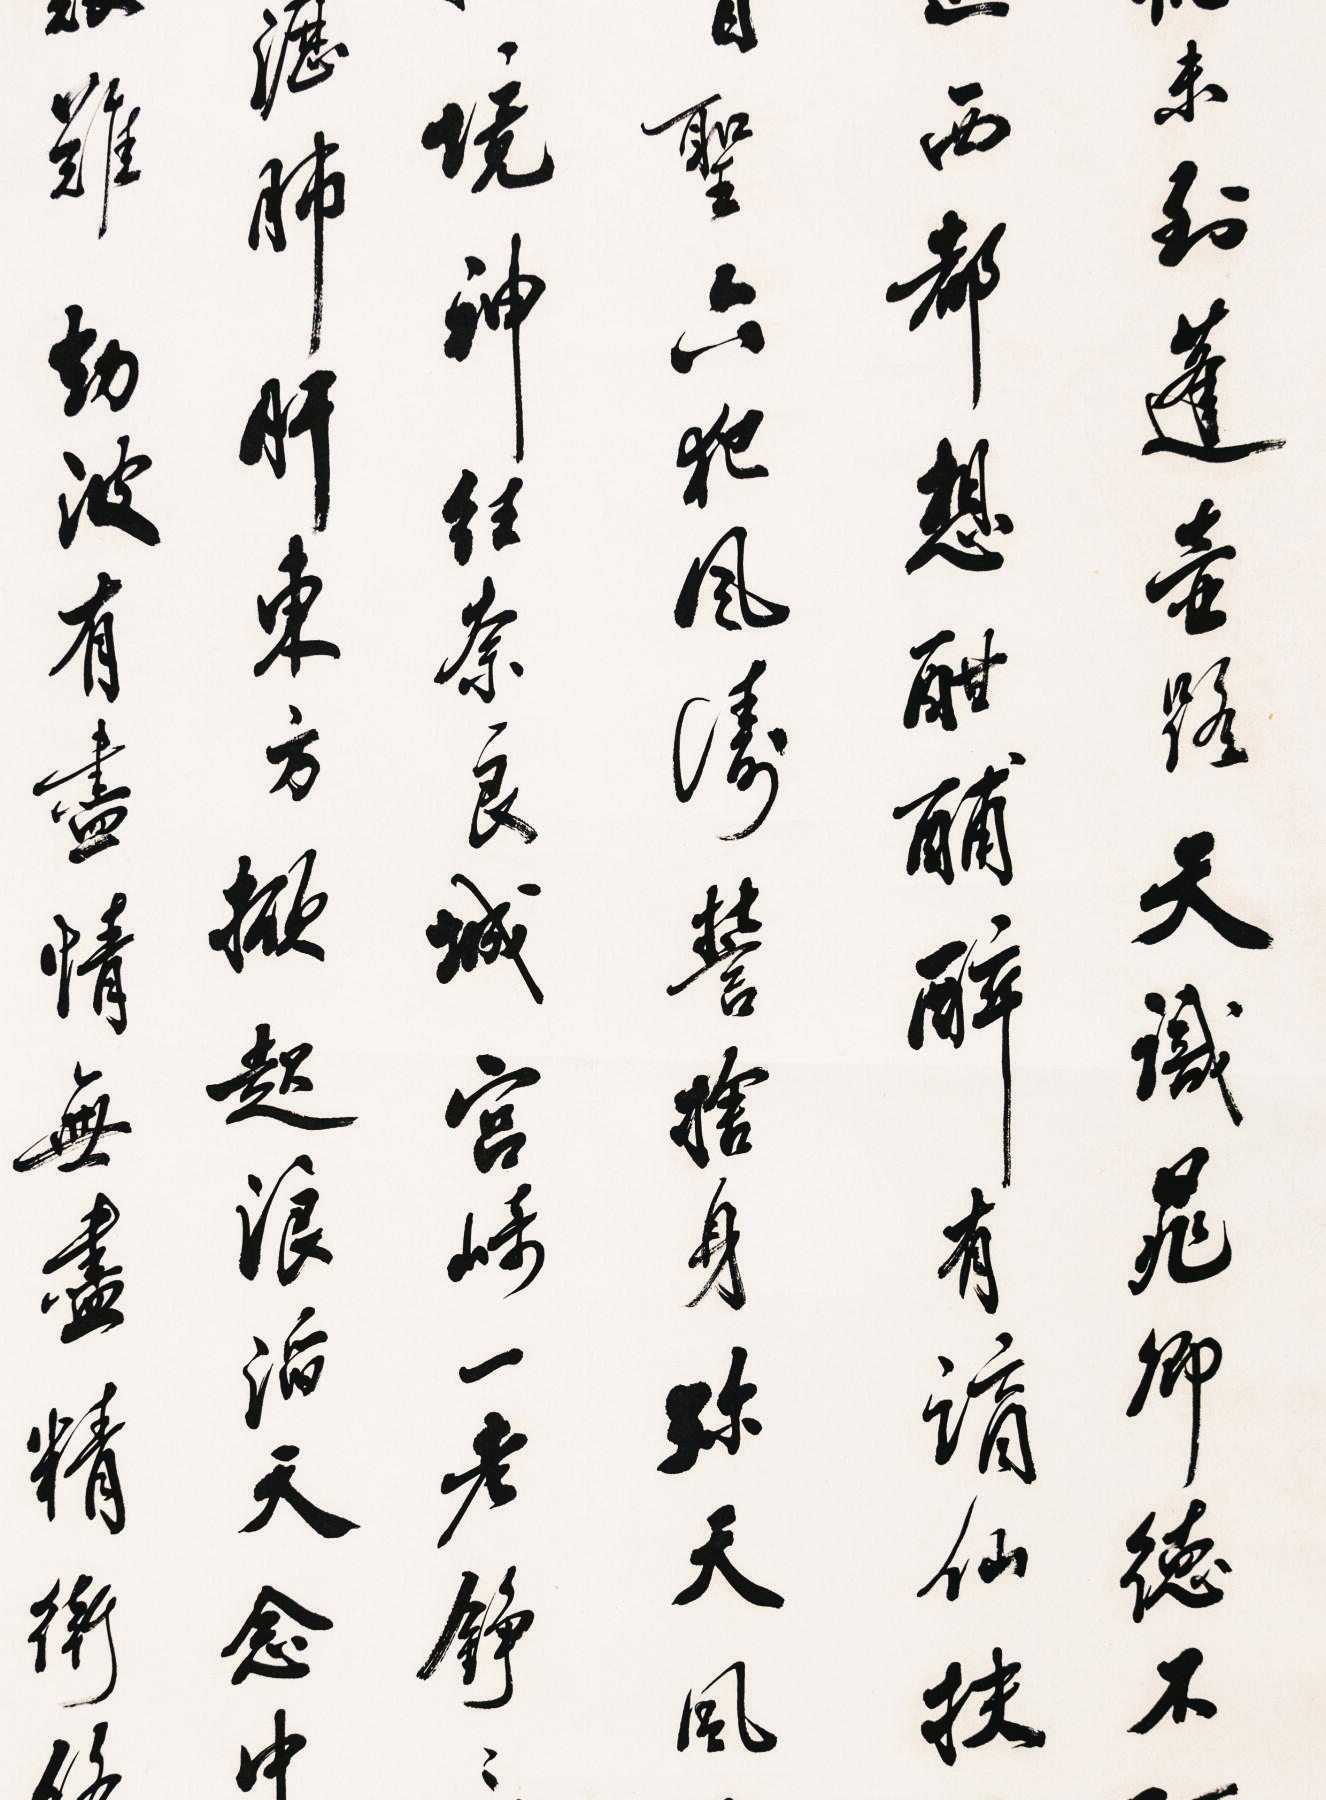 未到蓬壺路天識晁卿德不
西都想酣酺醉有謫仙扶
聖六犯風濤誓捨身弥天風
境神往奈良城宮崎一老錚々
瀝肺肝東方掀起浪滔天念中
難劫波有盡情無盡精衛